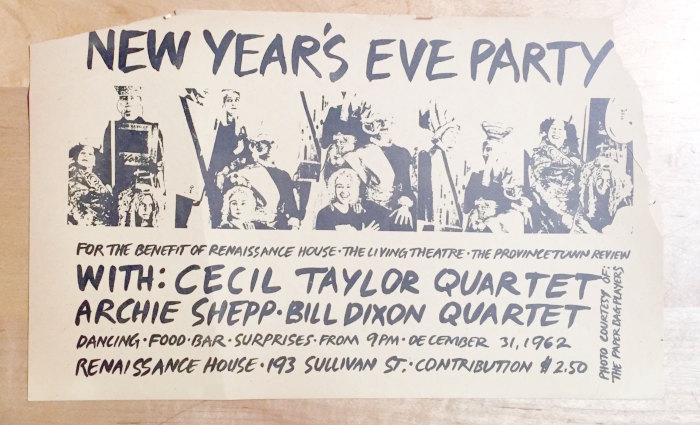 NEW YEAR'S EVE PARTY
FOR THE BENEFIT OF RENAISSANCE HOUSE · THE LIVING THEATRE · THE PROVINCETOWN REVIEW
WITH: CECIL TAYLOR QUARTET
ARCHIE SHEPP · BILL DIXON QUARTET
DANCING · FOOD · BAR · SURPRISES · FROM 9PM · DECEMBER 31, 1962
RENAISSANCE HOUSE · 193 SULLIVAN ST. · CONTRIBUTION $2.50
PHOTO COURTESY OF:
THE PAPER BAG PLAYERS